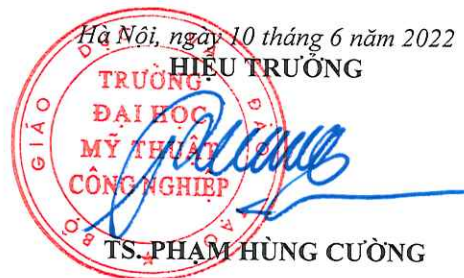 Hà Nội, ngày 10 tháng 6 năm 2022
HIỆU TRƯỞNG
BỘ GIÁO DỤC VÀ ĐÀO TẠO
TRƯỜNG
ĐẠI HỌC
MỸ THUẬT
CÔNG NGHIỆP
TS. PHẠM HÙNG CƯỜNG